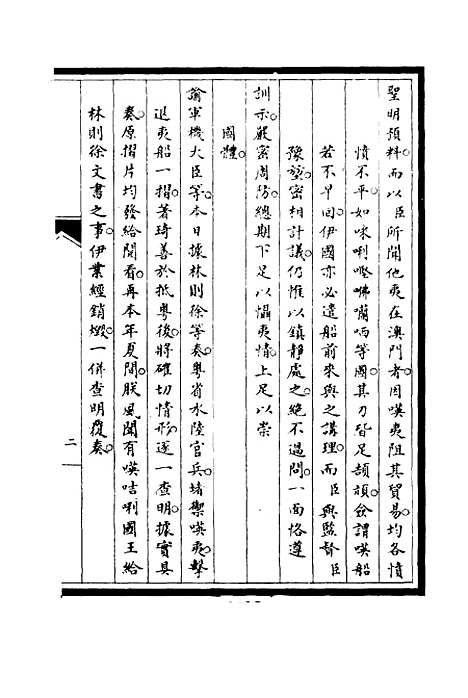 聖明預料而以臣所聞他夷在澳門者因嘆夷阻其貿易均各憤
憤不平如咪唎𠸄咈蘭哂等國其力皆足頡頏僉謂嘆船
若不早回伊國亦必遣船前來與之講理而臣與監督臣
豫堃密相計議仍惟以鎮靜處之絕不過問一面恪遵
訓示嚴密周防總期下足以懾夷情上足以崇
國體
諭軍機大臣等本日據林則徐等奏粵省水陸官兵堵禦嘆夷擊
退夷船一摺著琦善於抵粵後將確切情形逐一查明據實具
奏原摺片均發給閱看再本年夏間朕風聞有嘆咭唎國王給
林則徐文書之事伊業經銷燬一併查明覆奏
二